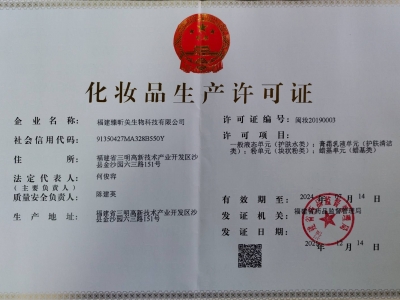 化妆品生产许可证
企业名称: 福建臻昕美生物科技有限公司
社会信用代码: 91350427MA328H550Y
住所: 福建省三明高新技术产业开发区沙
县金沙园六三路151号
法定代表人: 何俊蓉
(主要负责人)
质量安全负责人: 陈建英
生产地址: 福建省三明高新技术产业开发区沙
县金沙园六三路151号
许可证编号: 闽妆20190003
许可项目:
一般液态单元(护肤水类);膏霜乳液单元(护肤清洁
类);粉单元(块状粉类);蜡基单元(蜡基类)
有效期至: 2024 14
发证机关: 福建省药品监督管理局
发证日期: 14